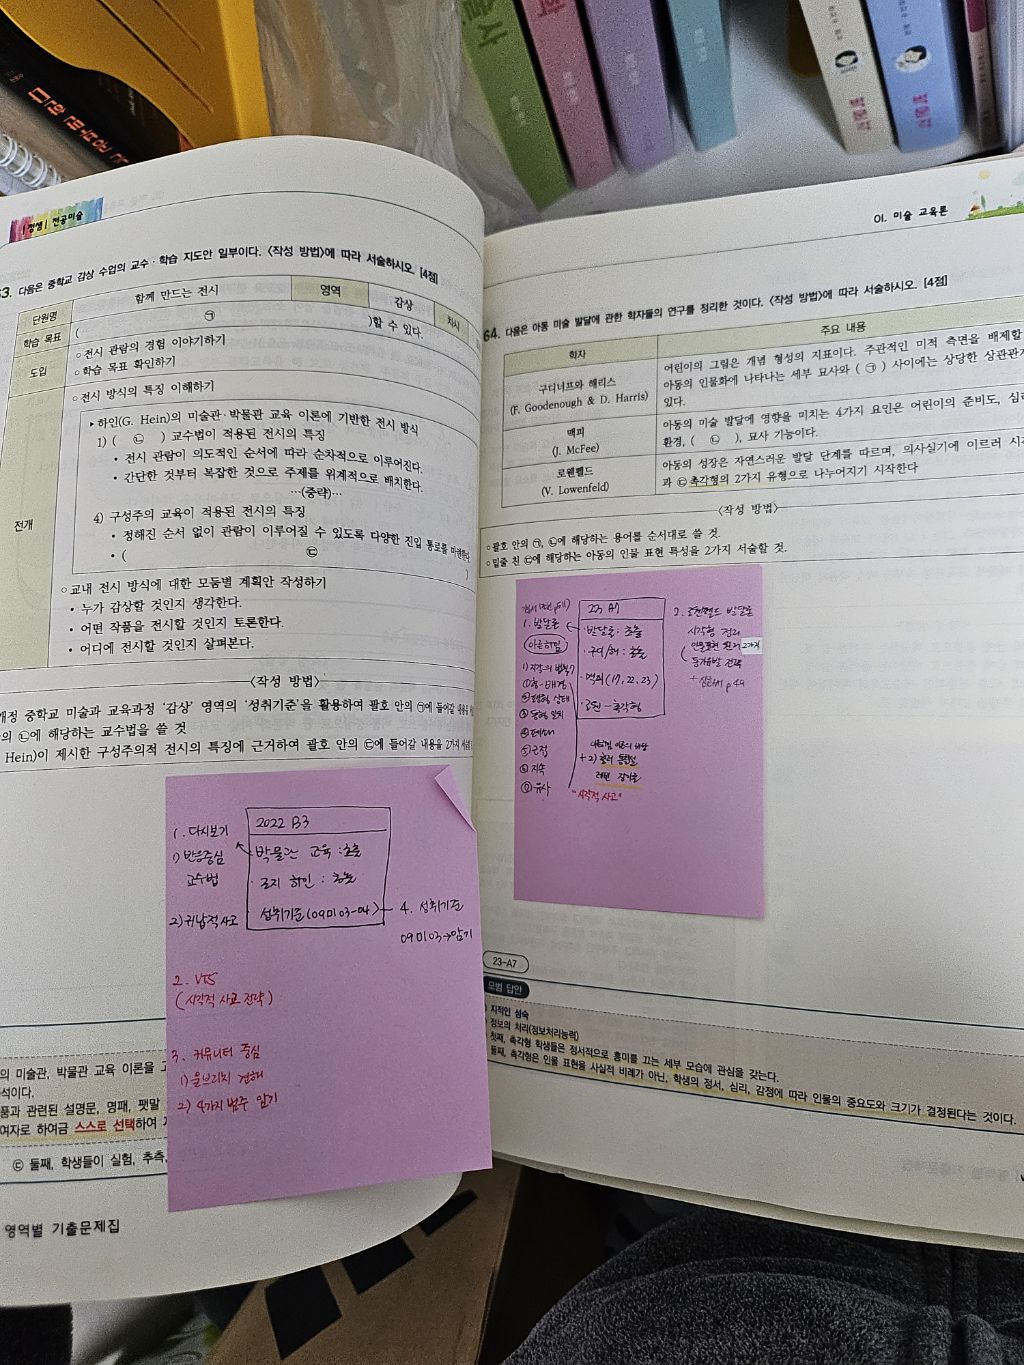 |정샘| 전공미술
63. 다음은 중학교 감상 수업의 교수·학습 지도안 일부이다. 〈작성 방법〉에 따라 서술하시오. [4점]
단원명 함께 만드는 전시 영역 감상 차시
학습 목표 ( ㉠ )할 수 있다.
도입
○ 전시 관람의 경험 이야기하기
○ 학습 목표 확인하기
전개
○ 전시 방식의 특징 이해하기
▸ 하인(G. Hein)의 미술관·박물관 교육 이론에 기반한 전시 방식
1) ( ㉡ ) 교수법이 적용된 전시의 특징
• 전시 관람이 의도적인 순서에 따라 순차적으로 이루어진다.
• 간단한 것부터 복잡한 것으로 주제를 위계적으로 배치한다.
…(중략)…
4) 구성주의 교육이 적용된 전시의 특징
• 정해진 순서 없이 관람이 이루어질 수 있도록 다양한 진입 통로를 마련한다.
• ( ㉢ )
○ 교내 전시 방식에 대한 모둠별 계획안 작성하기
• 누가 감상할 것인지 생각한다.
• 어떤 작품을 전시할 것인지 토론한다.
• 어디에 전시할 것인지 살펴본다.
〈작성 방법〉
개정 중학교 미술과 교육과정 '감상' 영역의 '성취기준'을 활용하여 괄호 안의 ㉠에 들어갈 내용을
의 ㉡에 해당하는 교수법을 쓸 것
Hein)이 제시한 구성주의적 전시의 특징에 근거하여 괄호 안의 ㉢에 들어갈 내용을 2가지
2022 B3
박물관 교육 : 초출
조지 하인 : 초출
성취기준(09미03-04)
1. 다시보기
1) 반응중심
교수법
2) 귀납적사고
4. 성취기준
09미03→암기
2. VTS
(시각적 사고 전략)
3. 커뮤니티 중심
1) 울브리치 견해
2) 4가지 범주 암기
의 미술관, 박물관 교육 이론을
석이다.
품과 관련된 설명문, 명패, 팻말
여자로 하여금 스스로 선택하여
㉢ 둘째, 학생들이 실험, 추측,
영역별 기출문제집
01. 미술 교육론
64. 다음은 아동 미술 발달에 관한 학자들의 연구를 정리한 것이다. 〈작성 방법〉에 따라 서술하시오. [4점]
학자 주요 내용
구디너프와 해리스
(F. Goodenough & D. Harris)
어린이의 그림은 개념 형성의 지표이다. 주관적인 미적 측면을 배제할
아동의 인물화에 나타나는 세부 묘사와 ( ㉠ ) 사이에는 상당한 상관관계
있다.
맥피
(J. McFee)
아동의 미술 발달에 영향을 미치는 4가지 요인은 어린이의 준비도, 심리
환경, ( ㉡ ), 묘사 기능이다.
로웬펠드
(V. Lowenfeld)
아동의 성장은 자연스러운 발달 단계를 따르며, 의사실기에 이르러 시각
과 ㉢촉각형의 2가지 유형으로 나누어지기 시작한다
〈작성 방법〉
○ 괄호 안의 ㉠, ㉡에 해당하는 용어를 순서대로 쓸 것.
○ 밑줄 친 ㉢에 해당하는 아동의 인물 표현 특성을 2가지 서술할 것.
23 A7
발달론 : 초출
구디/해 : 초출
맥피(17, 22, 23)
로웬-촉각형
1. 발달론
아른하임
①형-배경
②평형 상태
⑤근접
⑥지속
⑦유사
"시각적 사고"
2. 로웬펠드 발달론
시각형 정리
2가지
23-A7
모범 답안
지적인 성숙
정보의 처리(정보처리능력)
첫째, 촉각형 학생들은 정서적으로 흥미를 끄는 세부 모습에 관심을 갖는다.
둘째, 촉각형은 인물 표현을 사실적 비례가 아닌, 학생의 정서, 심리, 감정에 따라 인물의 중요도와 크기가 결정된다는 것이다.